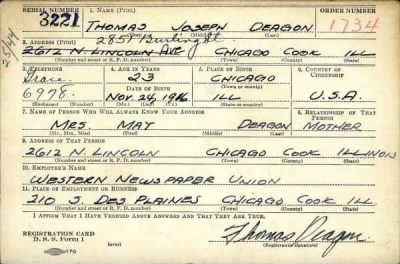 SERIAL NUMBER 1. NAME (Print) ORDER NUMBER
3221 THOMAS JOSEPH DEAGON 1734
2859 Burling St
2. ADDRESS (Print)
2612 N. LINCOLN AVE CHICAGO COOK ILL
3. TELEPHONE 4. AGE IN YEARS 5. PLACE OF BIRTH 6. COUNTRY OF CITIZENSHIP
Grace 23 CHICAGO
DATE OF BIRTH
6978 Nov 24, 1916 ILL U.S.A.
(Exchange) (Number) (Mo.) (Day) (Yr.) (State or country)
7. NAME OF PERSON WHO WILL ALWAYS KNOW YOUR ADDRESS 8. RELATIONSHIP OF THAT PERSON
MRS. MAY DEAGON MOTHER
(Mr., Mrs., Miss) (First) (Middle) (Last)
9. ADDRESS OF THAT PERSON
2612 N. LINCOLN CHICAGO COOK ILLINOIS
(Number and street or R. F. D. number) (Town) (County) (State)
10. EMPLOYER'S NAME
WESTERN NEWSPAPER UNION
11. PLACE OF EMPLOYMENT OR BUSINESS
210 S. DES PLAINES CHICAGO COOK ILL
(Number and street or R. F. D. number) (Town) (County) (State)
I AFFIRM THAT I HAVE VERIFIED ABOVE ANSWERS AND THAT THEY ARE TRUE.
REGISTRATION CARD
D. S. S. Form 1 (over) Thomas Deagon
(Registrant's signature)